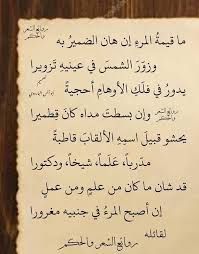 روائع الشعر
والحكم
ما قيمةُ المرءِ إن هان الضميرُ به
وزوّر الشمسَ في عينيهِ تزويرا
يدورُ في فلَكِ الأوهامِ أحجيةً
وإن بسطتَ مداه كانَ قِطميرا
روائع الشعر
والحكم
يحشو قبيلَ اسمِهِ الألقابَ قاطبةً
مدرّباً، عَلَماً، شيخاً، ودكتورا
قد شان ما كان من علمٍ ومن عملٍ
إن أصبح المرءُ في جنبيه مغرورا
لقائله
روائع الشعر والحكم